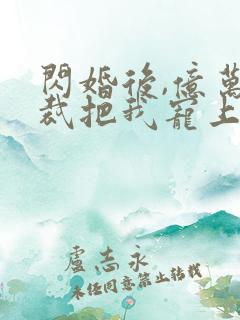 閃婚後,億萬
裁把我寵上
盧志永
未經同意禁止转载